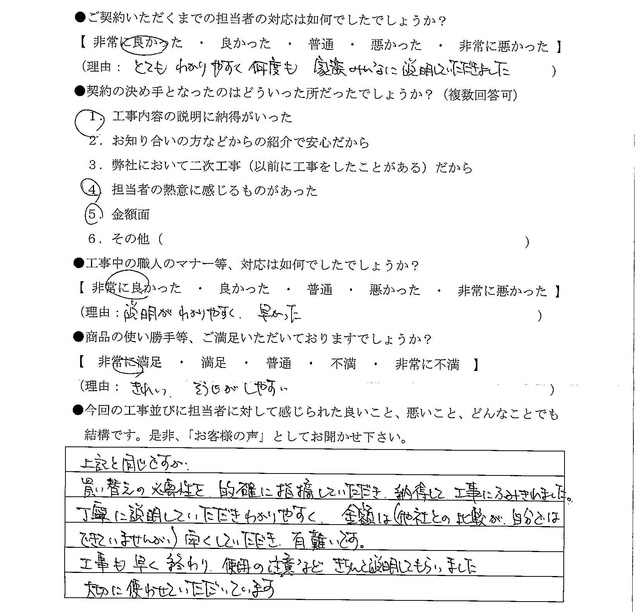 ●ご契約いただくまでの担当者の対応は如何でしたでしょうか？
【 非常に良かった ・ 良かった ・ 普通 ・ 悪かった ・ 非常に悪かった 】
(理由： とても わかりやすく 何度も 家族みんなに 説明していただきました )
●契約の決め手となったのはどういった所だったでしょうか？（複数回答可）
1．工事内容の説明に納得がいった
2．お知り合いの方などからの紹介で安心だから
3．弊社において二次工事（以前に工事をしたことがある）だから
4．担当者の熱意に感じるものがあった
5．金額面
6．その他（ ）
●工事中の職人のマナー等、対応は如何でしたでしょうか？
【 非常に良かった ・ 良かった ・ 普通 ・ 悪かった ・ 非常に悪かった 】
(理由： 説明がわかりやすく、早かった )
●商品の使い勝手等、ご満足いただいておりますでしょうか？
【 非常に満足 ・ 満足 ・ 普通 ・ 不満 ・ 非常に不満 】
(理由： きれい、そうじがしやすい )
●今回の工事並びに担当者に対して感じられた良いこと、悪いこと、どんなことでも
結構です。是非、「お客様の声」としてお聞かせ下さい。
上記と同じですが、
買い替えの必要性を 的確に指摘していただき、納得して工事にふみきれました。
丁寧に説明していただきわかりやすく、金額は(他社との比較が、自分では
できていませんが)安くしていただき、有難いです。
工事も早く終わり、使用の注意など きちんと説明してもらいました
大切に使わせていただいています